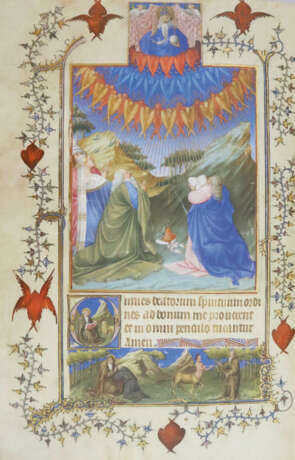 Omnes beatorum spirituum ordi
nes ad bonum me prouocent
et in omni periculo
Amen.